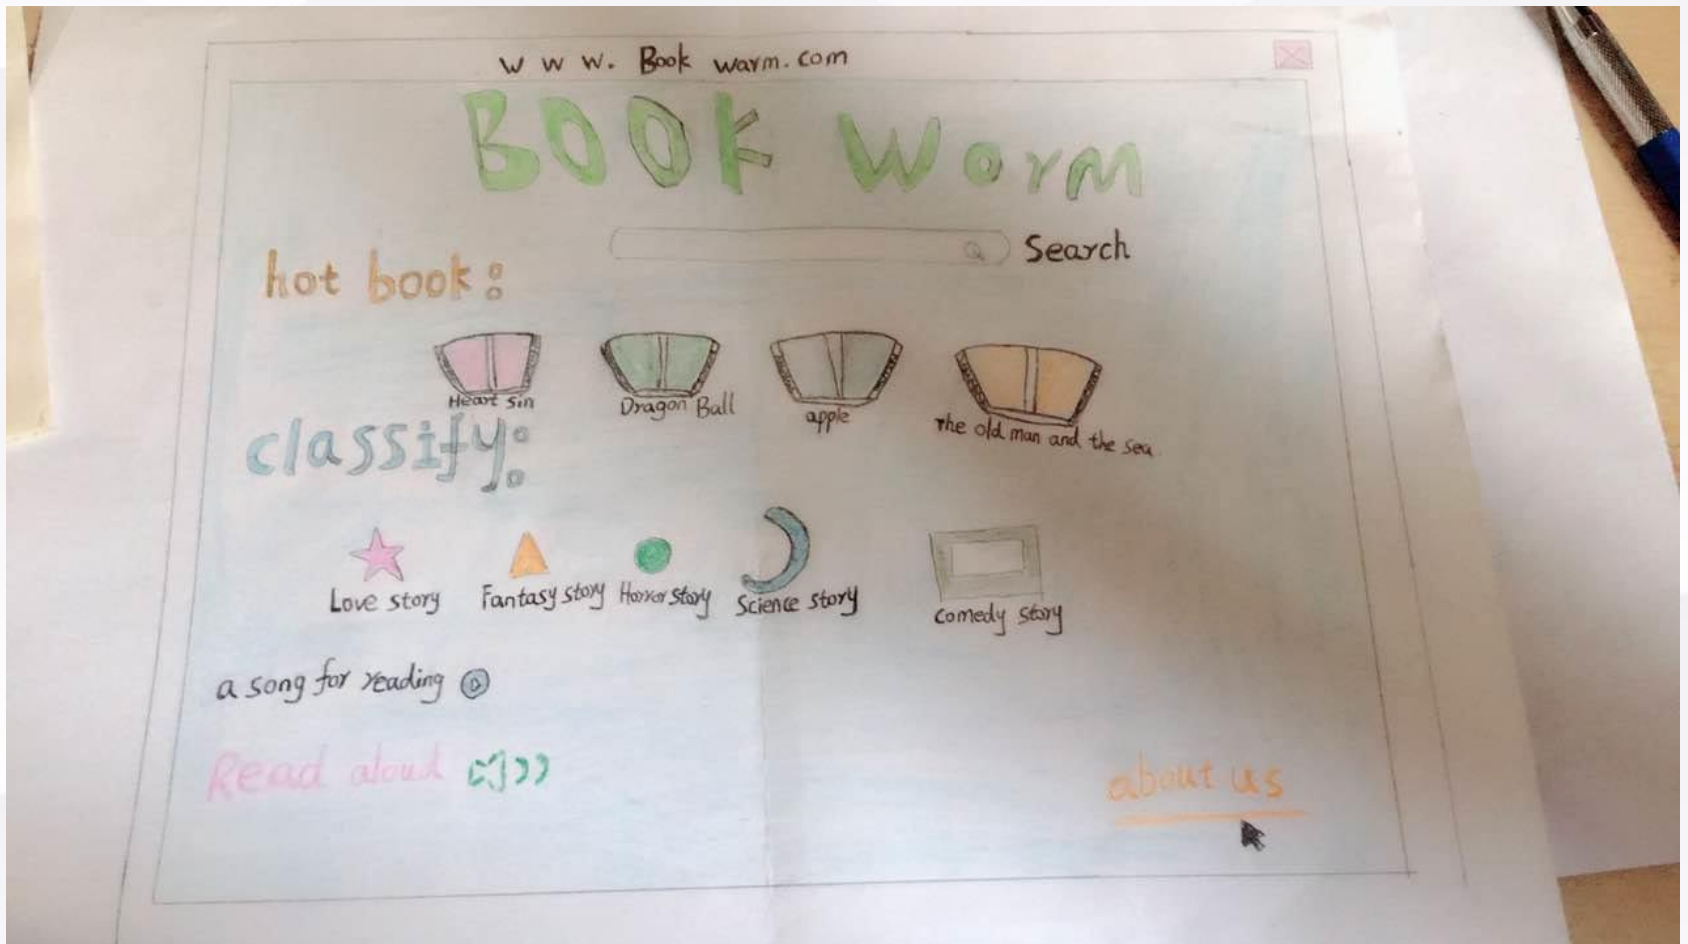 www. Book warm.com
BOOK Worm
Search
hot book:
Heart Sin
Dragon Ball
apple
The old man and the sea
classify:
Love story
Fantasy story
Horror story
Science story
Comedy story
a song for reading
Read aloud
about us